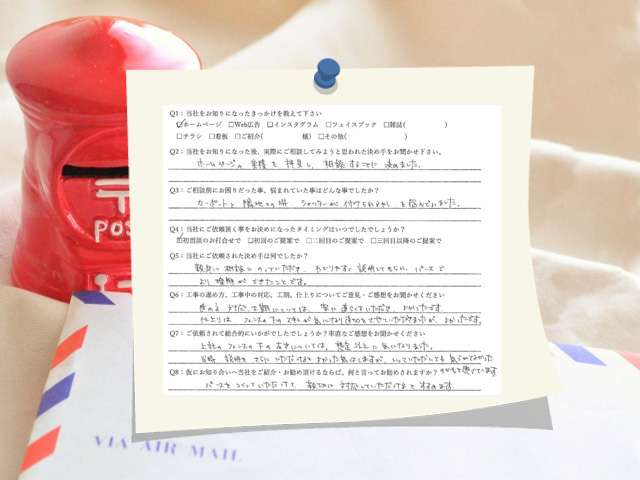 Q1：当社をお知りになったきっかけを教えて下さい
☑ホームページ □Web広告 □インスタグラム □フェイスブック □雑誌( )
□チラシ □看板 □ご紹介( 様) □その他( )
Q2：当社をお知りになった後、実際にご相談してみようと思われた決め手をお聞かせ下さい。
ホームページの実績を拝見し、相談することに決めました。
Q3：ご相談前にお困りだった事、悩まれていた事はどんな事でしたか？
カーポートと隣地との境 シャッターが付けられるか を悩んでいました。
Q4：当社にご依頼頂く事をお決めになったタイミングはいつでしたでしょうか？
☑初当談のお打合せで □初回のご提案で □二回目のご提案で □三回目以降のご提案で
Q5：当社にご依頼された決め手は何でしたか？
親身に相談にのっていただき、わかりやすく説明してもらい、パースで
より理解ができたことです。
Q6：工事の進め方、工事中の対応、工期、仕上りについてご意見・ご感想をお聞かせください
進め方、対応、工期については、
仕上りは フェンスの下のスキマが気になり
Q7：ご依頼されて総合的にいかがでしたでしょうか？率直なご感想をお聞かせください
フェンスの下の については、想定以上に気になりました。
説明を さらに いただけると よかった気はしますが、
Q8：仮にお知り合いへ当社をご紹介・お勧め頂けるならば、何と言ってお勧めされますか？
パースをつくっていただけて、親切に対応していただけますと すすめます.
POS
VIA AIR MAIL